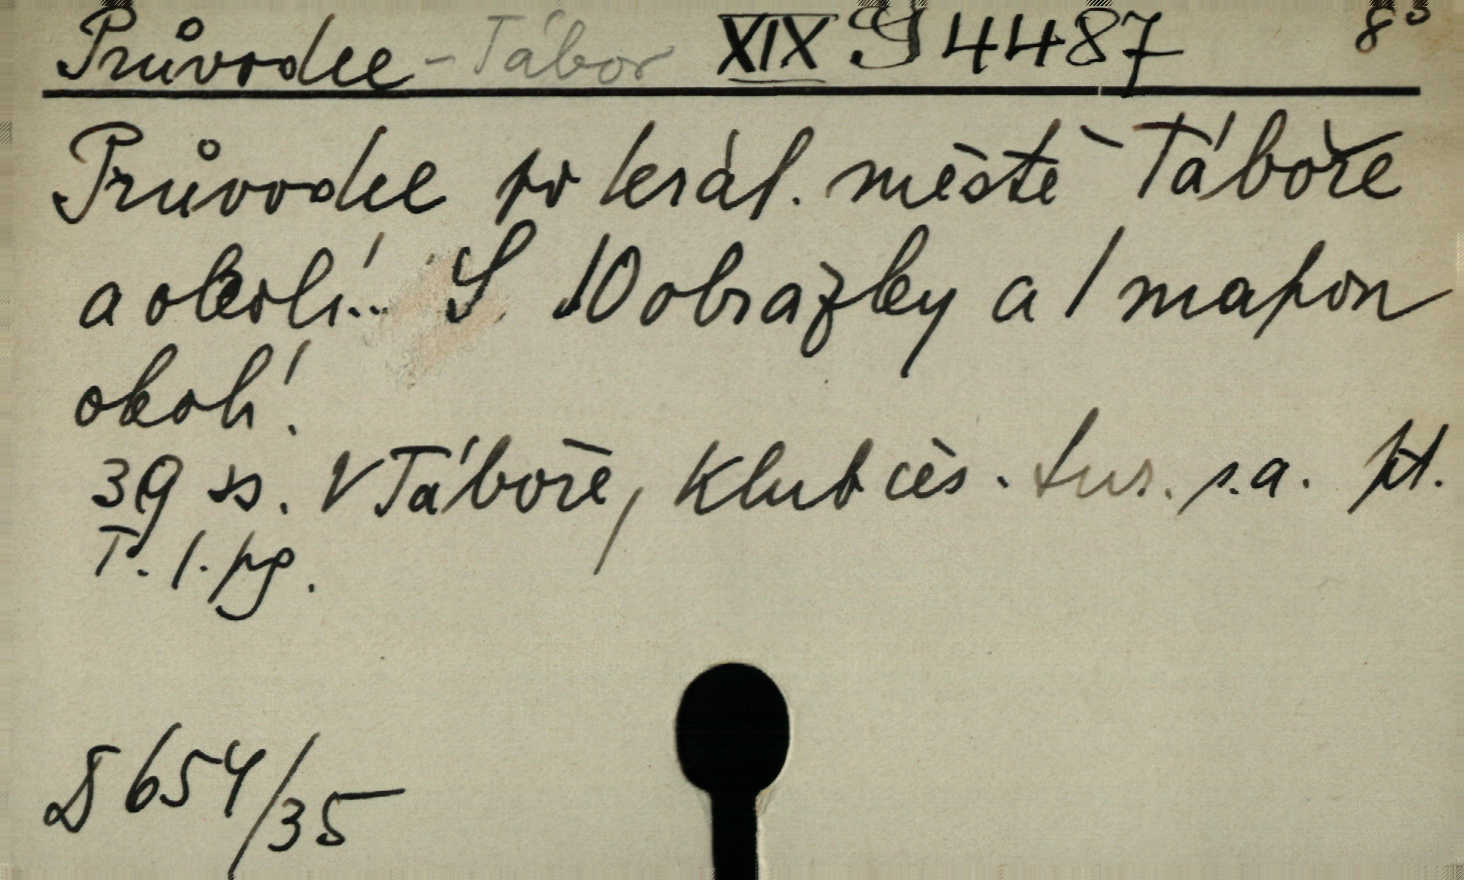 Průvodce - Tábor XIX G 4487 8°
Průvodce po král. městě Táboře
a okolí.. S 10 obrázky a 1 mapou
okolí.
39 ss. V Táboře, Klub čes. tur. s.a. pt.
T. 1. pg.
D 654/35